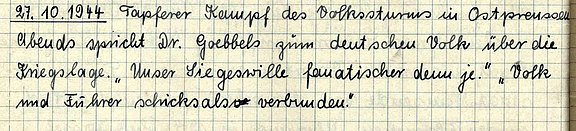 27.10.1944 Tapferer Kampf des Volkssturms in Ostpreussen
Abends spricht Dr. Goebbels zum deutschen Volk über die
Kriegslage. „Unser Siegeswille fanatischer denn je." „Volk
und Führer schicksals verbunden."